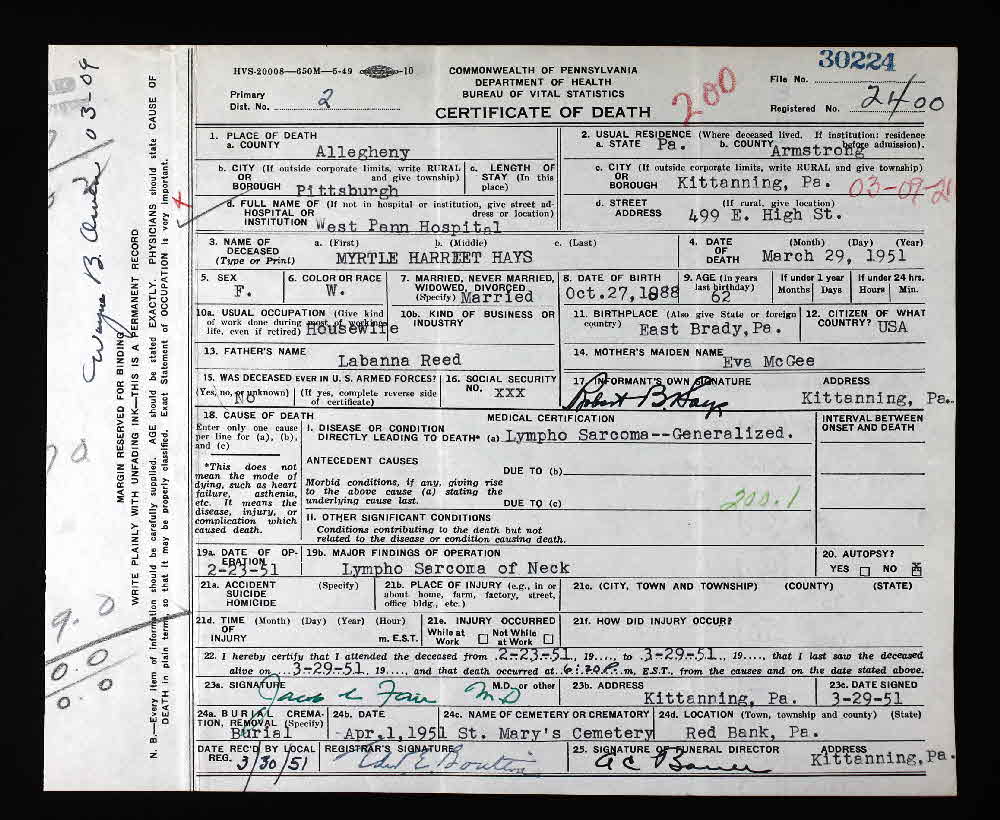 30224
HVS-20008—650M—6-49 -10
COMMONWEALTH OF PENNSYLVANIA
DEPARTMENT OF HEALTH
BUREAU OF VITAL STATISTICS
CERTIFICATE OF DEATH
File No.
Primary
Dist. No. 2
200
Registered No. 2400
1. PLACE OF DEATH
a. COUNTY Allegheny
2. USUAL RESIDENCE (Where deceased lived. If institution: residence before admission).
a. STATE Pa. b. COUNTY Armstrong
b. CITY (If outside corporate limits, write RURAL and give township)
OR
BOROUGH Pittsburgh
c. LENGTH OF STAY (In this place)
c. CITY (If outside corporate limits, write RURAL and give township)
OR
BOROUGH Kittanning, Pa. 03-09-2
d. FULL NAME OF (If not in hospital or institution, give street address or location)
HOSPITAL OR
INSTITUTION West Penn Hospital
d. STREET (If rural, give location)
ADDRESS 499 E. High St.
3. NAME OF DECEASED (Type or Print) a. (First) b. (Middle) c. (Last)
MYRTLE HARRIET HAYS
4. DATE OF DEATH (Month) (Day) (Year)
March 29, 1951
5. SEX
F.
6. COLOR OR RACE
W.
7. MARRIED, NEVER MARRIED, WIDOWED, DIVORCED (Specify) Married
8. DATE OF BIRTH
Oct.27,1888
9. AGE (In years last birthday)
62
If under 1 year
Months Days
If under 24 hrs.
Hours Min.
10a. USUAL OCCUPATION (Give kind of work done during most of working life, even if retired) Housewife
10b. KIND OF BUSINESS OR INDUSTRY
11. BIRTHPLACE (Also give State or foreign country) East Brady,Pa.
12. CITIZEN OF WHAT COUNTRY? USA
13. FATHER'S NAME
Labanna Reed
14. MOTHER'S MAIDEN NAME
Eva McGee
15. WAS DECEASED EVER IN U. S. ARMED FORCES?
(Yes, no, or unknown) NO (If yes, complete reverse side of certificate)
16. SOCIAL SECURITY NO. XXX
17. INFORMANT'S OWN SIGNATURE ADDRESS
Robert B. Hays Kittanning, Pa.
18. CAUSE OF DEATH
Enter only one cause per line for (a), (b), and (c)
MEDICAL CERTIFICATION
INTERVAL BETWEEN ONSET AND DEATH
I. DISEASE OR CONDITION
DIRECTLY LEADING TO DEATH* (a) Lympho Sarcoma--Generalized.
*This does not mean the mode of dying, such as heart failure, asthenia, etc. It means the disease, injury, or complication which caused death.
ANTECEDENT CAUSES
DUE TO (b)
Morbid conditions, if any, giving rise to the above cause (a) stating the underlying cause last.
DUE TO (c)
200.1
II. OTHER SIGNIFICANT CONDITIONS
Conditions contributing to the death but not
related to the disease or condition causing death.
19a. DATE OF OPERATION
2-23-51
19b. MAJOR FINDINGS OF OPERATION
Lympho Sarcoma of Neck
20. AUTOPSY?
YES NO X
21a. ACCIDENT SUICIDE HOMICIDE (Specify)
21b. PLACE OF INJURY (e.g., in or about home, farm, factory, street, office bldg., etc.)
21c. (CITY, TOWN AND TOWNSHIP) (COUNTY) (STATE)
21d. TIME OF INJURY (Month) (Day) (Year) (Hour)
m. E.S.T.
21e. INJURY OCCURRED
While at Work Not While at Work
21f. HOW DID INJURY OCCUR?
22. I hereby certify that I attended the deceased from 2-23-51, 19...., to 3-29-51, 19...., that I last saw the deceased
alive on 3-29-51, 19...., and that death occurred at 6:30P.m, E.S.T., from the causes and on the date stated above.
23a. SIGNATURE M.D. or other
M.D
23b. ADDRESS
Kittanning, Pa.
23c. DATE SIGNED
3-29-51
24a. BURIAL CREMATION, REMOVAL (Specify)
Burial
24b. DATE
Apr.1,1951
24c. NAME OF CEMETERY OR CREMATORY
St. Mary's Cemetery
24d. LOCATION (Town, township and county) (State)
Red Bank, Pa.
DATE REC'D BY LOCAL REG. 3/30/51
REGISTRAR'S SIGNATURE
25. SIGNATURE OF FUNERAL DIRECTOR
ADDRESS
Kittanning,Pa.
MARGIN RESERVED FOR BINDING
WRITE PLAINLY WITH UNFADING INK—THIS IS A PERMANENT RECORD
N. B.—Every item of information should be carefully supplied. AGE should be stated EXACTLY. PHYSICIANS should state CAUSE OF
DEATH in plain terms, so that it may be properly classified. Exact Statement of OCCUPATION is very important.
03-09
9.0
0.0
0.0